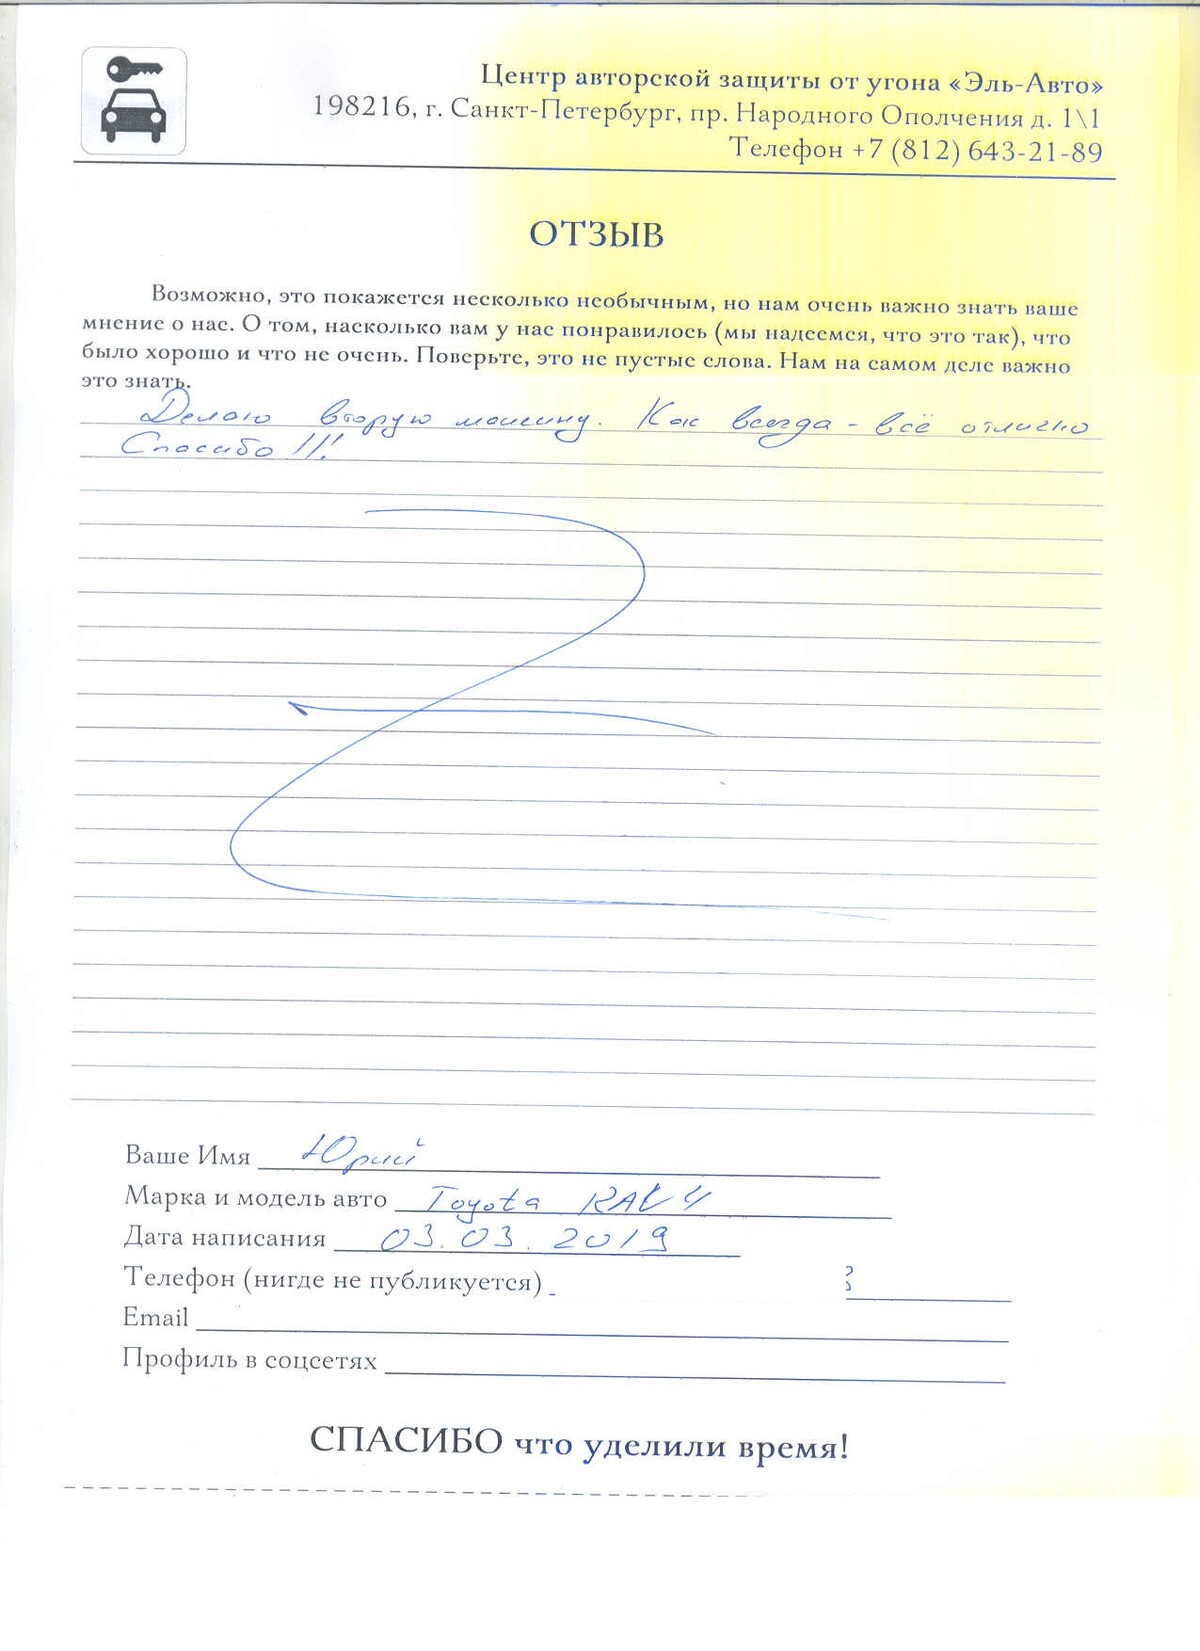 Центр авторской защиты от угона «Эль-Авто»
198216, г. Санкт-Петербург, пр. Народного Ополчения д. 1\1
Телефон +7 (812) 643-21-89
ОТЗЫВ
Возможно, это покажется несколько необычным, но нам очень важно знать ваше
мнение о нас. О том, насколько вам у нас понравилось (мы надеемся, что это так), что
было хорошо и что не очень. Поверьте, это не пустые слова. Нам на самом деле важно
это знать.
Делаю вторую машину. Как всегда - всё отлично
Спасибо !!!
Ваше Имя Юрий
Марка и модель авто Toyota RAV 4
Дата написания 03.03.2019
Телефон (нигде не публикуется)
Email
Профиль в соцсетях
СПАСИБО что уделили время!